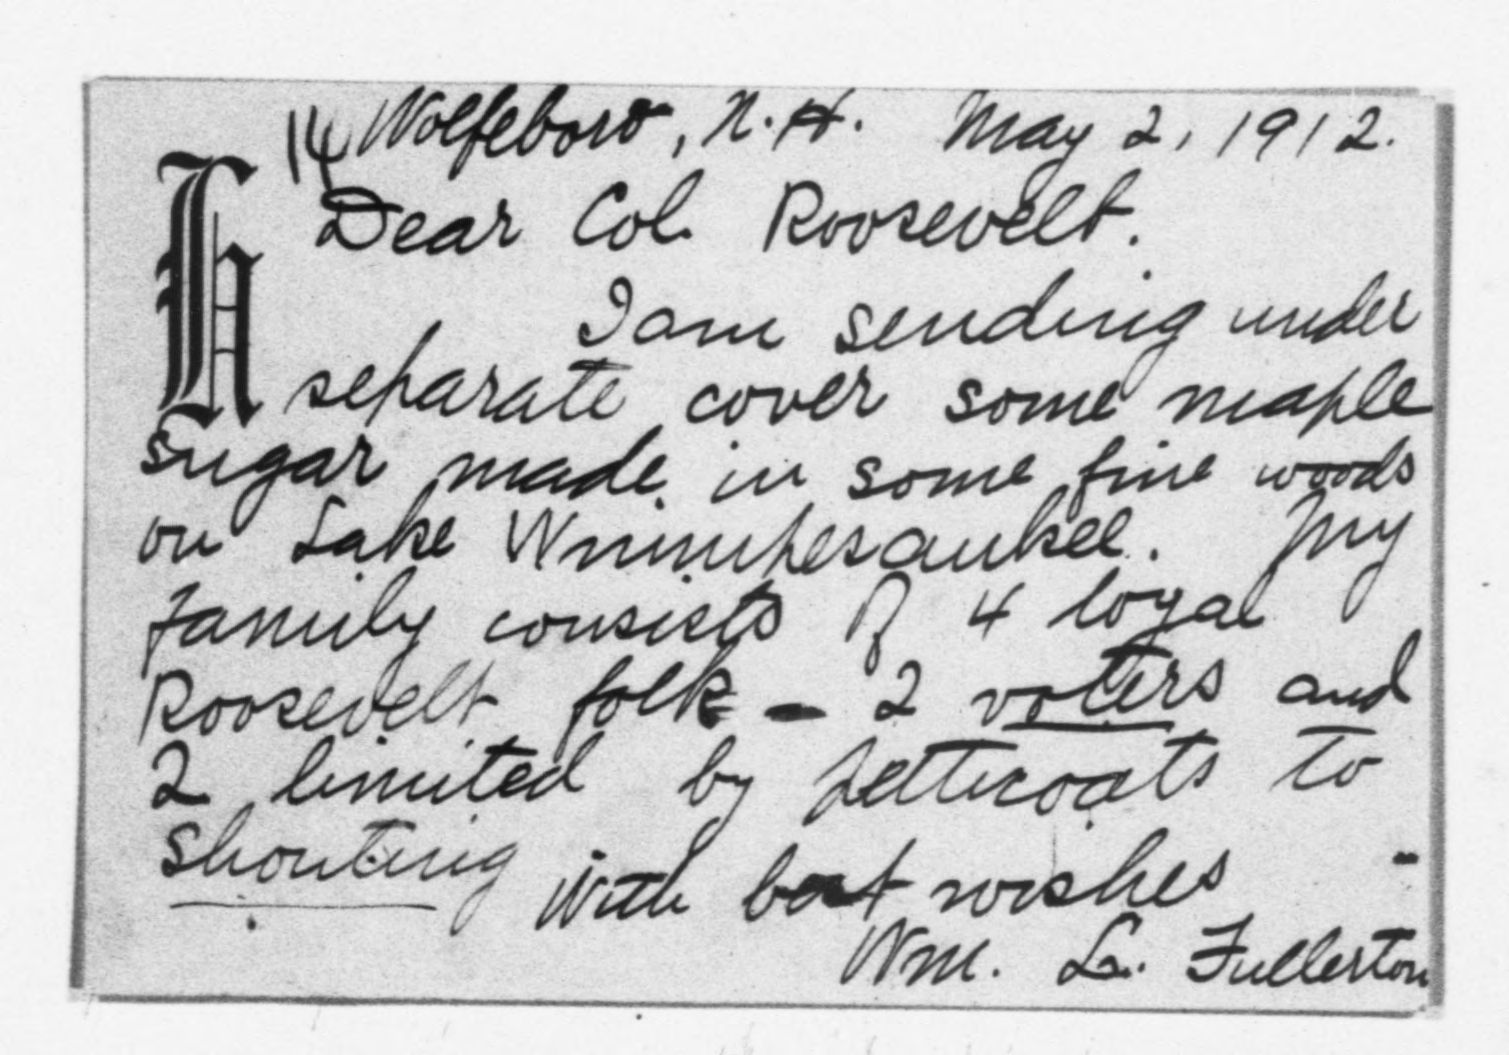 14 Wolfeboro, N.H. May 2, 1912.
Dear Col. Roosevelt.
I am sending under
separate cover some maple
sugar made in some fine woods
on Lake Winnipesaukee. My
family consists of 4 loyal
Roosevelt folk - 2 voters and
2 limited by petticoats to
shouting
With best wishes -
Wm. L. Fullerton